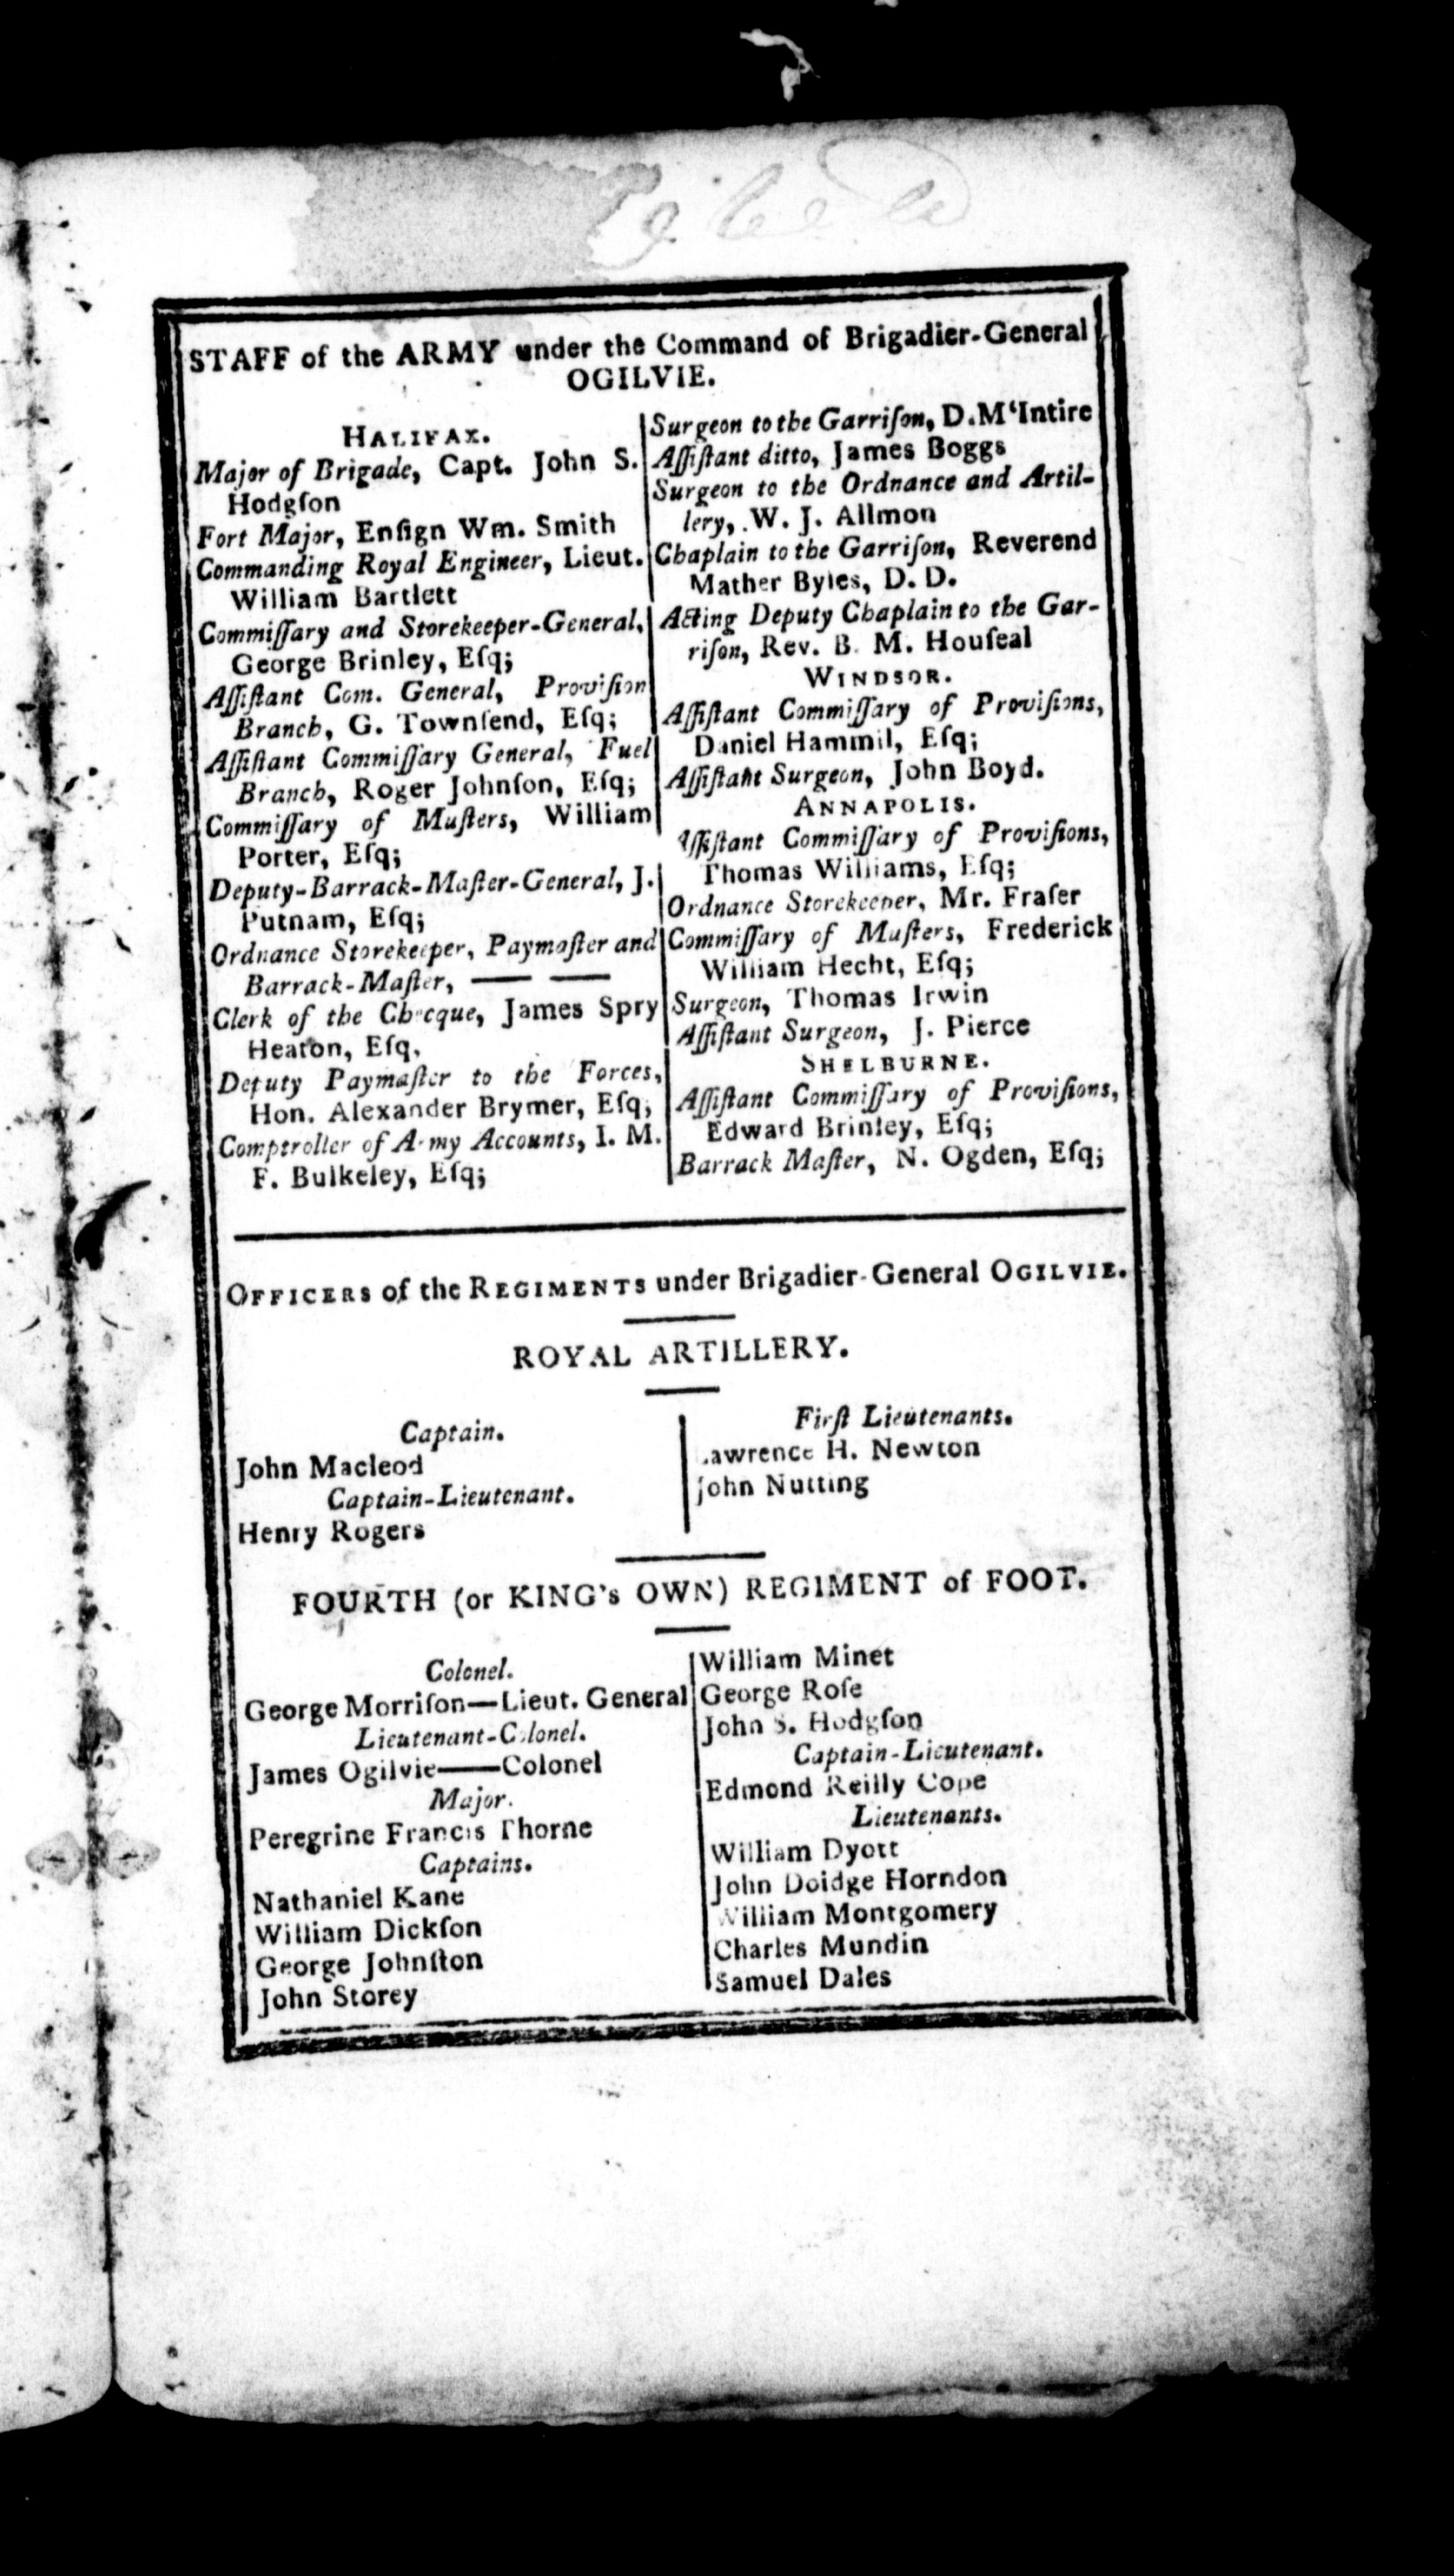 STAFF of the ARMY under the Command of Brigadier-General
OGILVIE.
HALIFAX.
Major of Brigade, Capt. John S.
Hodgſon
Fort Major, Enſign Wm. Smith
Commanding Royal Engineer, Lieut.
William Bartlett
Commiſſary and Storekeeper-General,
George Brinley, Eſq;
Aſſiſtant Com. General, Proviſion
Branch, G. Townſend, Eſq;
Aſſiſtant Commiſſary General, Fuel
Branch, Roger Johnſon, Eſq;
Commiſſary of Muſters, William
Porter, Eſq;
Deputy-Barrack-Maſter-General, J.
Putnam, Eſq;
Ordnance Storekeeper, Paymaſter and
Barrack-Maſter, —— ——
Clerk of the Checque, James Spry
Heaton, Eſq.
Deputy Paymaſter to the Forces,
Hon. Alexander Brymer, Eſq;
Comptroller of Army Accounts, I. M.
F. Bulkeley, Eſq;
Surgeon to the Garriſon, D. M‘Intire
Aſſiſtant ditto, James Boggs
Surgeon to the Ordnance and Artil-
lery, W. J. Allmon
Chaplain to the Garriſon, Reverend
Mather Byles, D. D.
Acting Deputy Chaplain to the Gar-
riſon, Rev. B. M. Houſeal
WINDSOR.
Aſſiſtant Commiſſary of Proviſions,
Daniel Hammil, Eſq;
Aſſiſtant Surgeon, John Boyd.
ANNAPOLIS.
Aſſiſtant Commiſſary of Proviſions,
Thomas Williams, Eſq;
Ordnance Storekeeper, Mr. Fraſer
Commiſſary of Muſters, Frederick
William Hecht, Eſq;
Surgeon, Thomas Irwin
Aſſiſtant Surgeon, J. Pierce
SHELBURNE.
Aſſiſtant Commiſſary of Proviſions,
Edward Brinley, Eſq;
Barrack Maſter, N. Ogden, Eſq;
OFFICERS of the REGIMENTS under Brigadier-General OGILVIE.
ROYAL ARTILLERY.
Captain.
John Macleod
Captain-Lieutenant.
Henry Rogers
Firſt Lieutenants.
Lawrence H. Newton
John Nutting
FOURTH (or KING's OWN) REGIMENT of FOOT.
Colonel.
George Morriſon—Lieut. General
Lieutenant-Colonel.
James Ogilvie——Colonel
Major.
Peregrine Francis Thorne
Captains.
Nathaniel Kane
William Dickſon
George Johnſton
John Storey
William Minet
George Roſe
John S. Hodgſon
Captain-Lieutenant.
Edmond Reilly Cope
Lieutenants.
William Dyott
John Doidge Horndon
William Montgomery
Charles Mundin
Samuel Dales